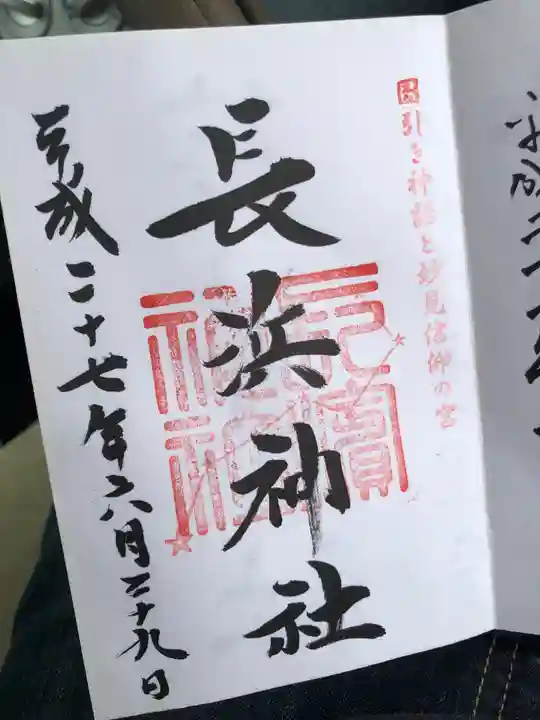 国引き神話と妙見信仰の宮
長浜神社
平成二十七年六月二十九日